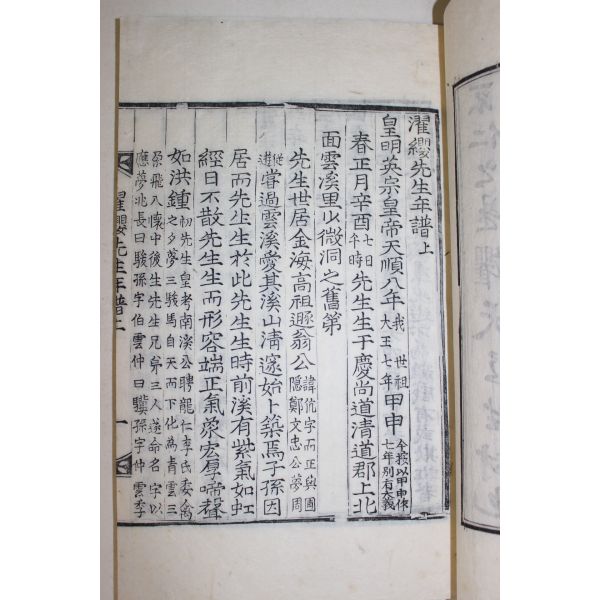 濯纓先生年譜上
皇明英宗皇帝天順八年我世祖大王七年甲申今按以甲申作七年別有奧義
春正月辛酉七日午時先生生于慶尚道清道郡上北
面雲溪里少微洞之舊第
先生世居金海高祖遯翁公諱伉字而正與圃隱鄭文忠公夢周
從遊嘗過雲溪愛其溪山清邃始卜築焉子孫因
居而先生生於此先生生時前溪有紫氣如虹
經日不散先生生而形容端正氣宇宏厚啼聲
如洪鍾初先生皇考南溪公聘龍仁李氏委禽之夕夢三駿馬自天而下化為青雲三
朶飛入懷中後生先生兄弟三人遂命名字以應夢兆長曰駿孫字伯雲仲曰驥孫字仲雲季
濯纓先生年譜上
一